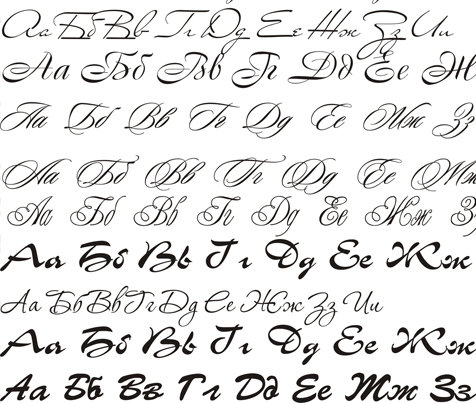 Аа Бб Вв Гг Дд Ее Жж Зз Ии
Аа Бб Вв Гг Дд Ее Ж
Аа Бб Вв Гг Дд Ее Жж Зз
Аа Бб Вв Гг Дд Ее Жж
Аа Бб Вв Гг Дд Ее Жж Зз
Аа Бб Вв Гг Дд Ее Жж
Аа Бб Вв Гг Дд Ее Жж Зз Ии
Аа Бб Вв Гг Дд Ее Жж
Аа Бб Вв Гг Дд Ее Жж Зз